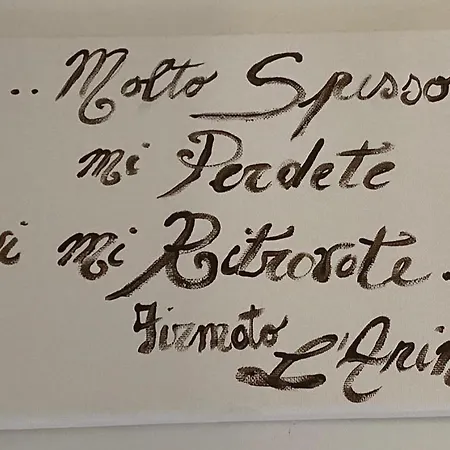 .. Molto Spesso
mi Perdete
mi Ritrovate.
Firmato
L'Anim